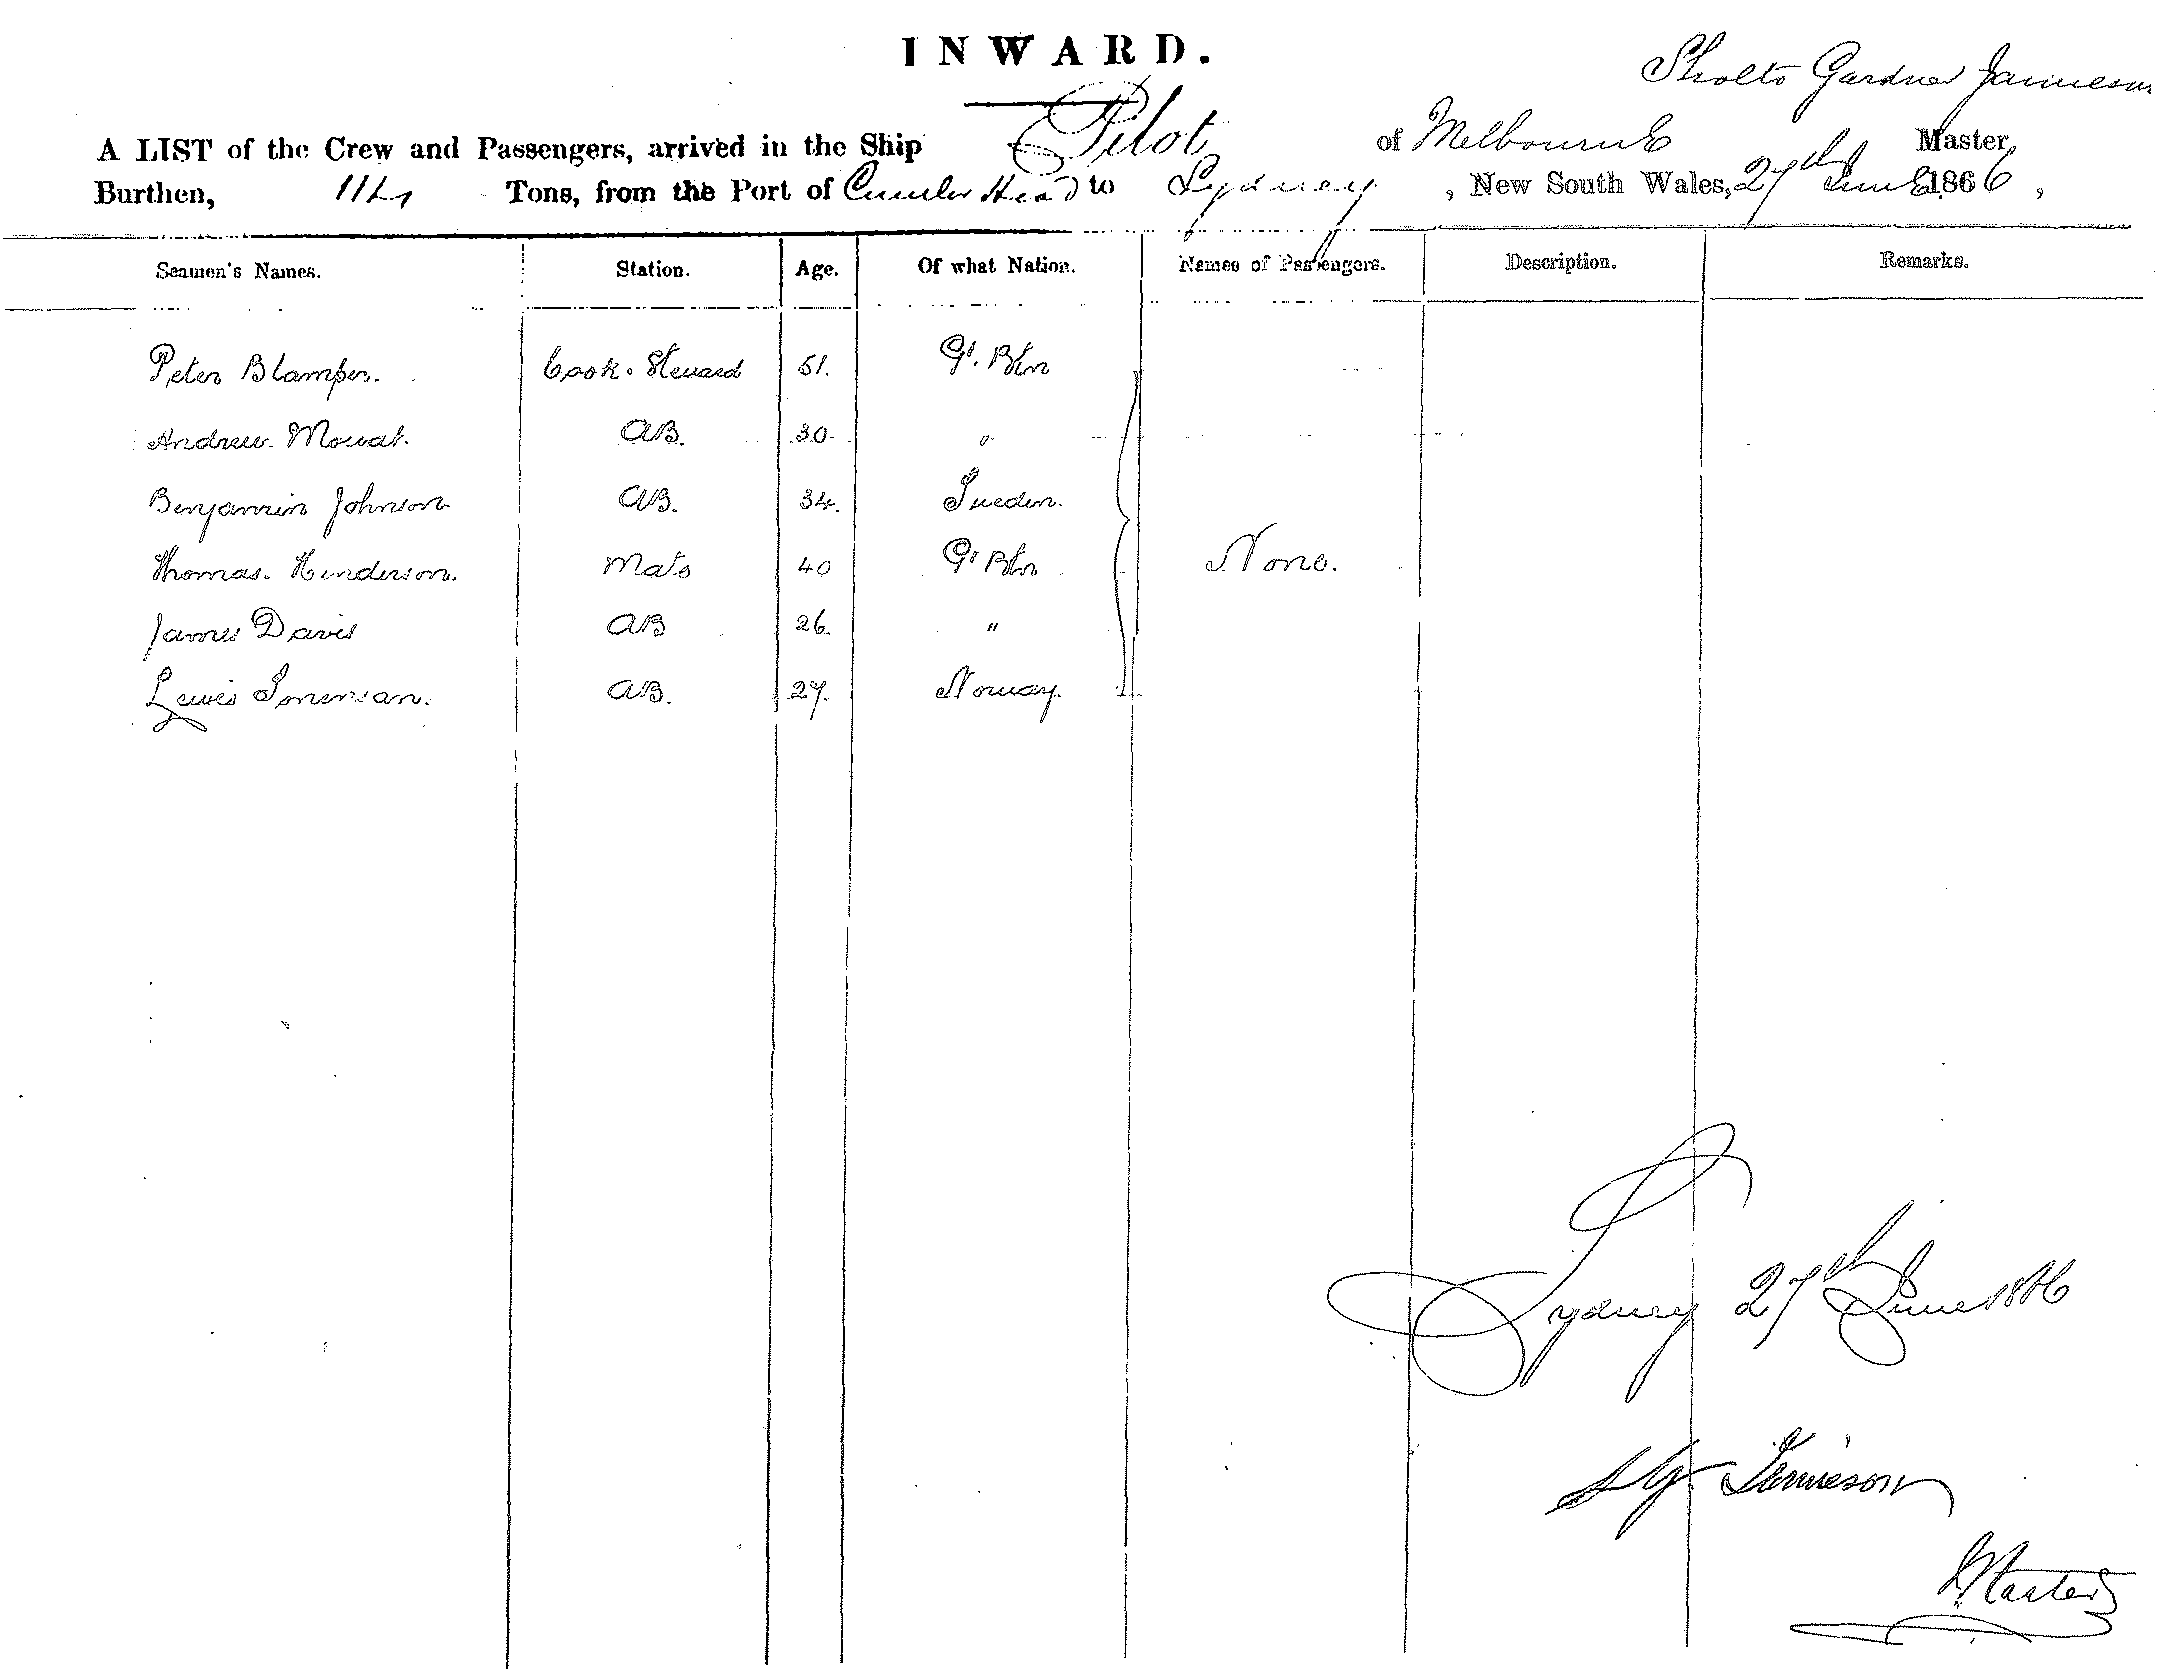 INWARD.
Sholto Gardner Jamieson
A LIST of the Crew and Passengers, arrived in the Ship Pilot of Melbourne Master,
Burthen, 114 Tons, from the Port of Head to Sydney, New South Wales, 27th June 1866,
Seamen's Names. Station. Age. Of what Nation. Names of Passengers. Description. Remarks.
Peter Blamper. Cook. Steward 51. Gt. Btn
Andrew Mowat. AB. 30. "
Benjamin Johnson AB. 34. Sweden.
Thomas. Henderson. Mate 40 Gt Btn None.
James Davis AB 26. "
Lewis AB. 27. Norway.
Sydney 27th June 1866
SG Jamieson
Master